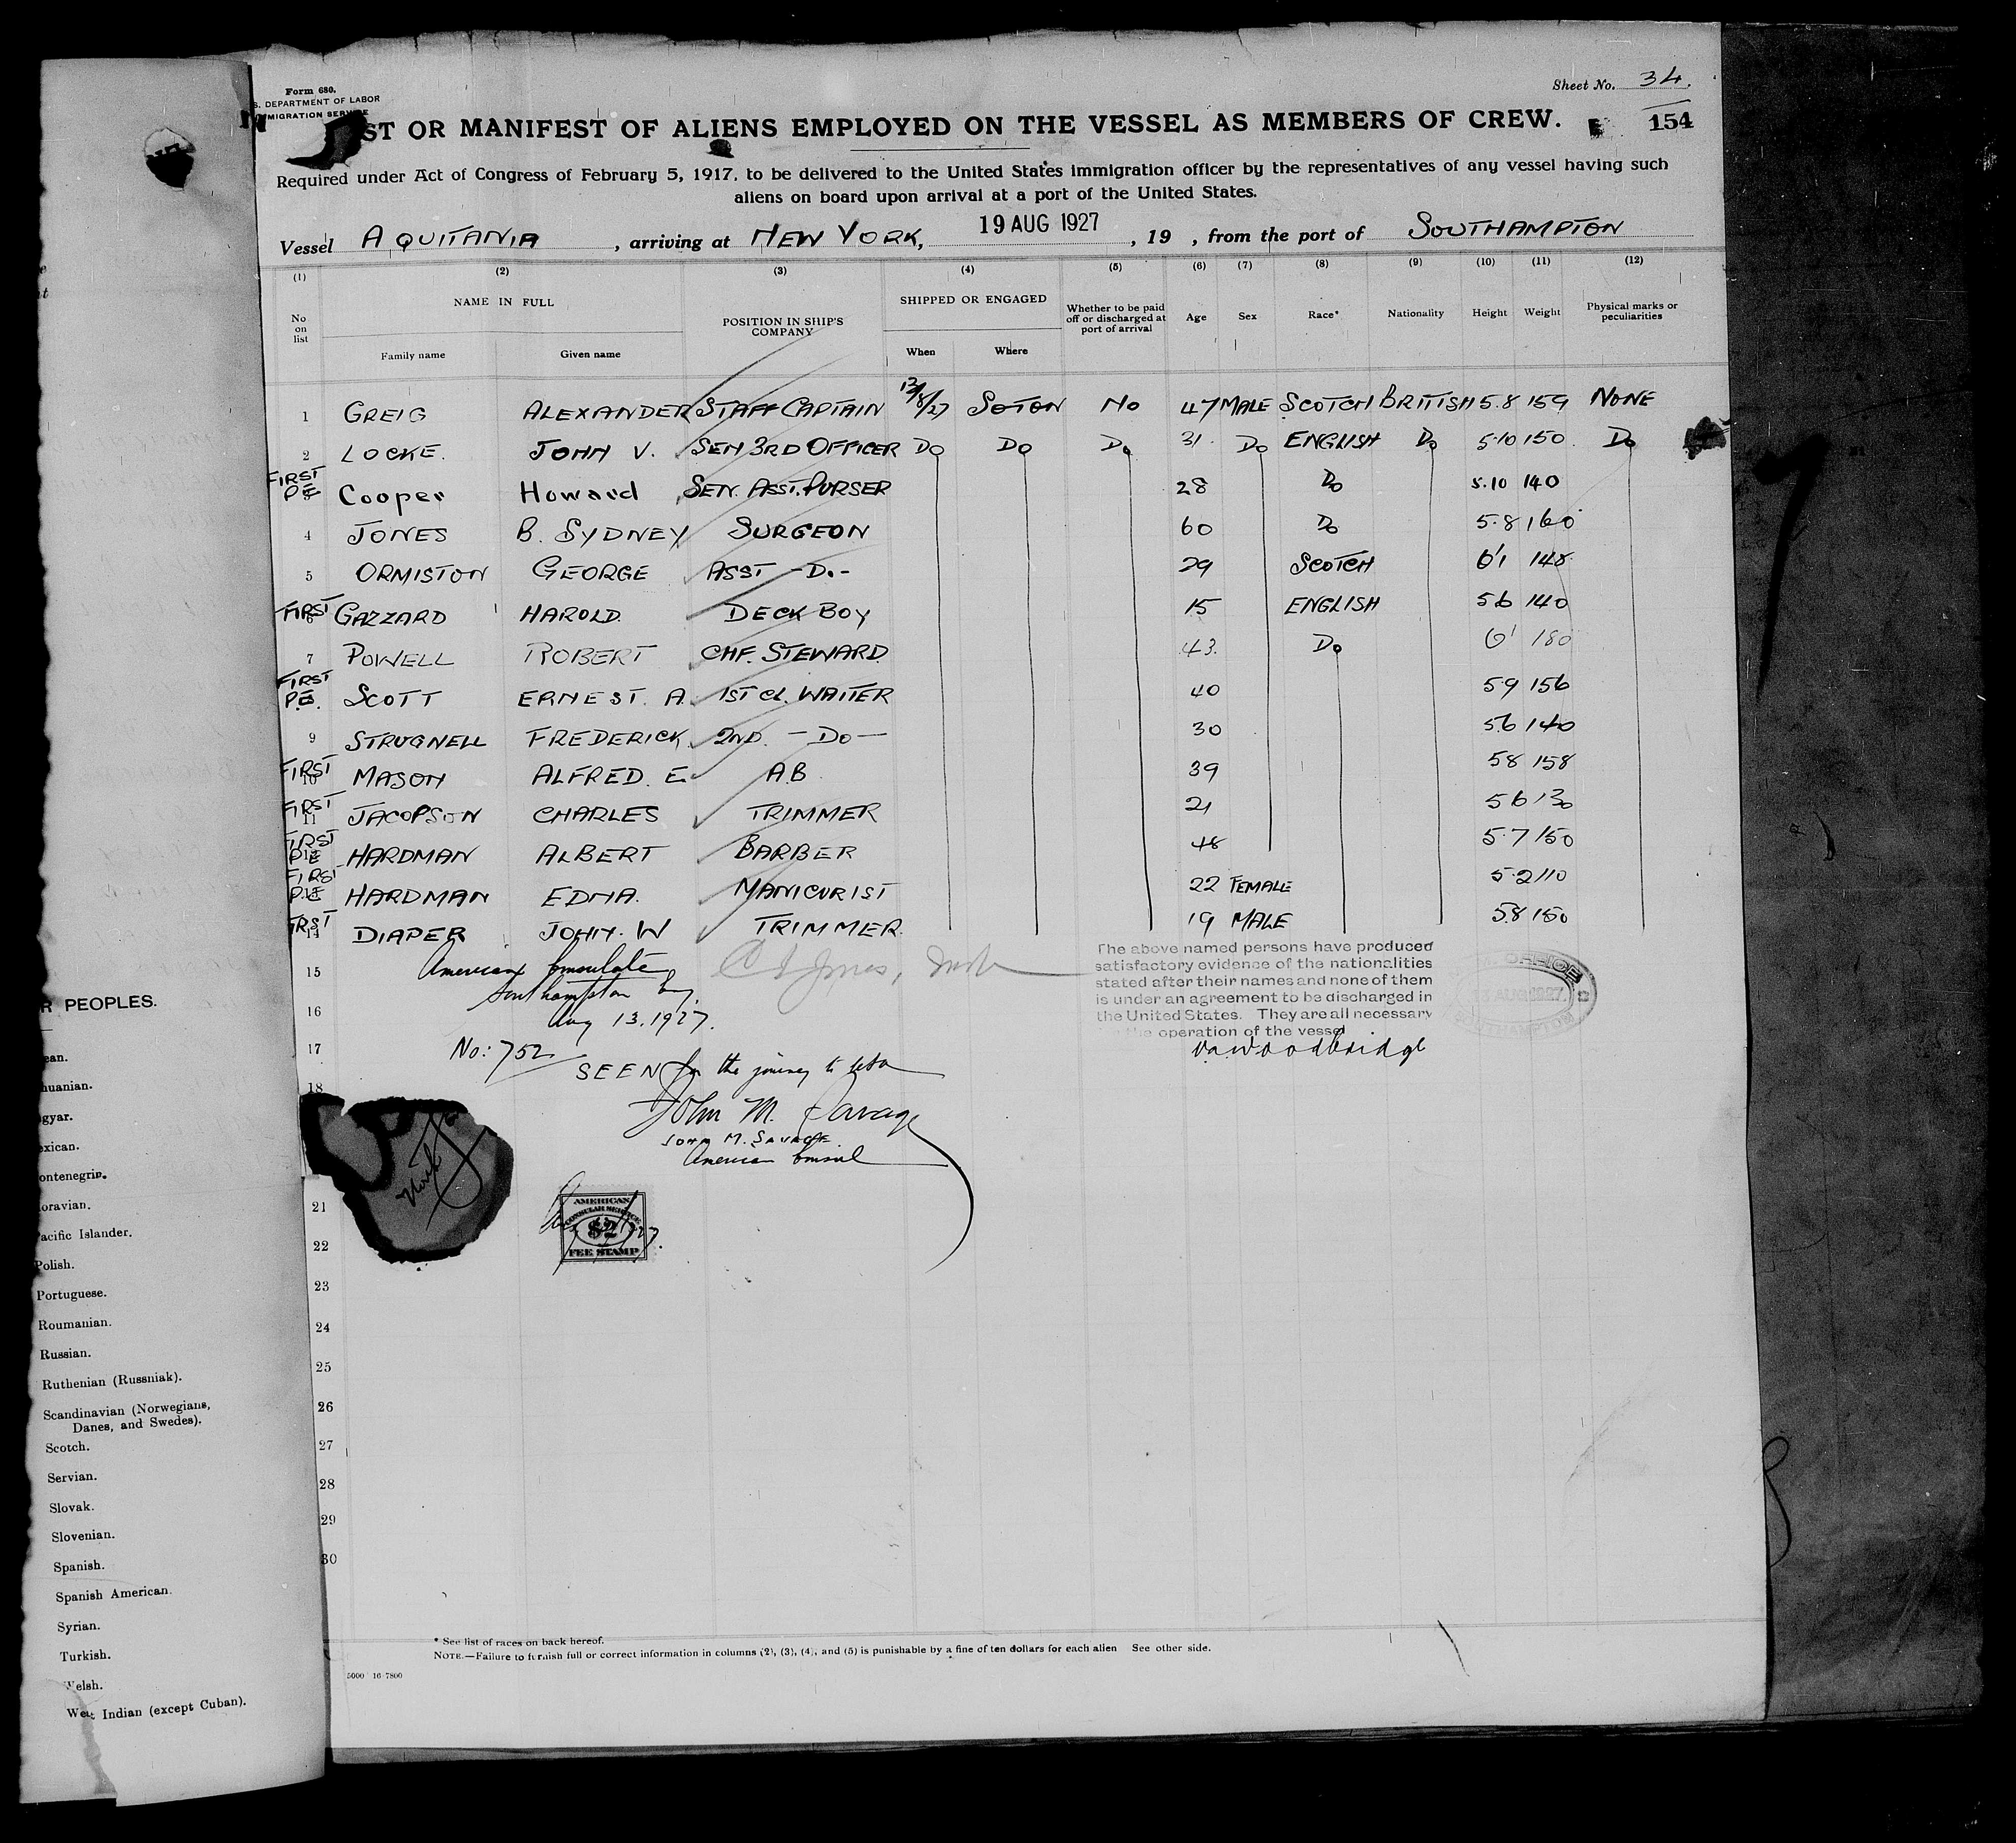 Form 680.
S. DEPARTMENT OF LABOR
IMMIGRATION SERVICE
Sheet No. 34.
154
ST OR MANIFEST OF ALIENS EMPLOYED ON THE VESSEL AS MEMBERS OF CREW.
Required under Act of Congress of February 5, 1917, to be delivered to the United States immigration officer by the representatives of any vessel having such
aliens on board upon arrival at a port of the United States.
Vessel AQUITANIA, arriving at NEW YORK, 19 AUG 1927, 19 , from the port of SOUTHAMPTON
(1) (2) (3) (4) (5) (6) (7) (8) (9) (10) (11) (12)
No on list NAME IN FULL POSITION IN SHIP'S COMPANY SHIPPED OR ENGAGED Whether to be paid off or discharged at port of arrival Age Sex Race* Nationality Height Weight Physical marks or peculiarities
Family name Given name When Where
1 GREIG ALEXANDER STAFF CAPTAIN 13/8/27 SOTON NO 47 MALE SCOTCH BRITISH 5.8 159 NONE
2 LOCKE. JOHN V. SEN 3RD OFFICER DO DO DO 31. DO ENGLISH DO 5.10 150. DO
FIRST P.E Cooper Howard SEN. ASST. PURSER 28 DO 5.10 140
4 JONES B. SYDNEY SURGEON 60 DO 5.8 160
5 ORMISTON GEORGE ASST -DO- 29 SCOTCH 6'1 148
FIRST 6 GAZZARD HAROLD. DECK BOY 15 ENGLISH 56 140
7 POWELL ROBERT CHF. STEWARD. 43. DO 6' 180
FIRST P.E. SCOTT ERNEST. A. 1ST CL. WAITER 40 5.9 156
9 STRUGNELL FREDERICK. 2ND. -DO- 30 5.6 140
FIRST 10 MASON ALFRED. E. A.B 39 58 158
FIRST 11 JACOPSON CHARLES TRIMMER 21 56 130
FIRST P.E HARDMAN ALBERT BARBER 48 5.7 150
FIRST P.E HARDMAN EDNA. MANICURIST 22 FEMALE 5.2 110
FIRST 14 DIAPER JOHN. W TRIMMER. 19 MALE 5.8 150
15 American Consulate
Southampton Eng.
16 Aug 13. 1927.
The above named persons have produced
satisfactory evidence of the nationalities
stated after their names and none of them
is under an agreement to be discharged in
the United States. They are all necessary
the operation of the vessel
OFFICE
13 AUG 1927
SOUTHAMPTON
17 No: 752
SEEN for the journey to
18
John M. Savage
JOHN M. SAVAGE.
American Consul
AMERICAN
CONSULAR SERVICE
$2
FEE STAMP
21
22
23
24
25
26
27
28
29
30
* See list of races on back hereof.
NOTE.—Failure to furnish full or correct information in columns (2), (3), (4), and (5) is punishable by a fine of ten dollars for each alien See other side.
5000 16-7800
R PEOPLES.
ean.
huanian.
gyar.
exican.
ontenegrin.
oravian.
acific Islander.
Polish.
Portuguese.
Roumanian.
Russian.
Ruthenian (Russniak).
Scandinavian (Norwegians,
Danes, and Swedes).
Scotch.
Servian.
Slovak.
Slovenian.
Spanish.
Spanish American.
Syrian.
Turkish.
Welsh.
West Indian (except Cuban).